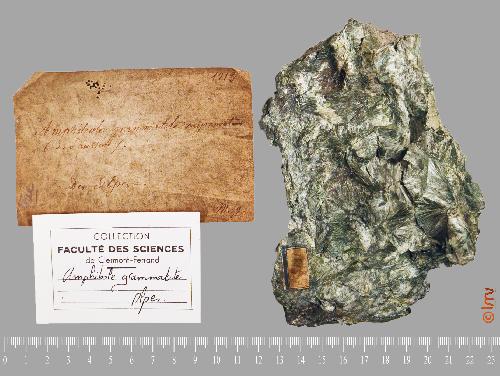 1213
Amphibole grammatite
Des Alpes
COLLECTION
FACULTÉ DES SCIENCES
de Clermont-Ferrand
Amphibole grammatite
Alpes
0 1 2 3 4 5 6 7 8 9 10 11 12 13 14 15 16 17 18 19 20 21 22 23
©lmv